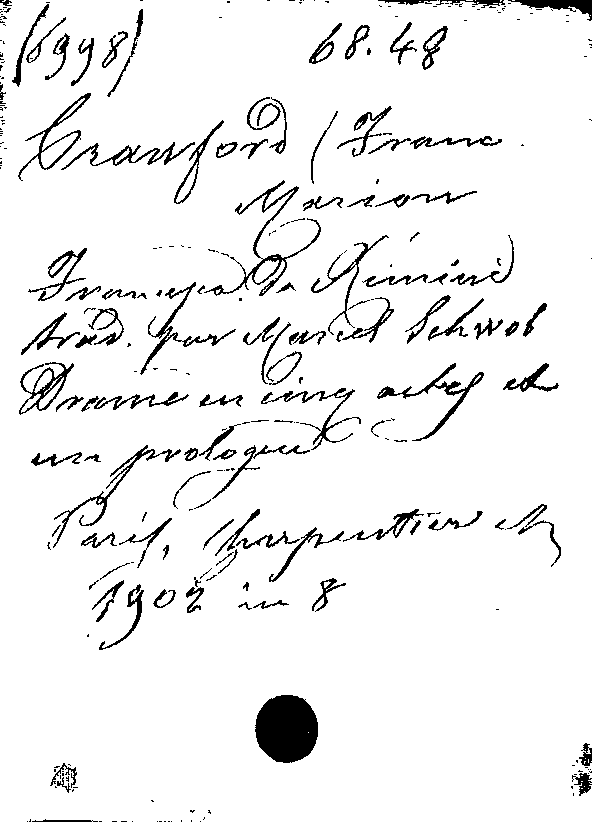 (6998) 68.48
Crawford (Franc
Marion
Francesca da Rimini)
trad. par Marcel Schwob
Drame en cinq actes et
un prologue
Paris, Charpentier
1902 in 8